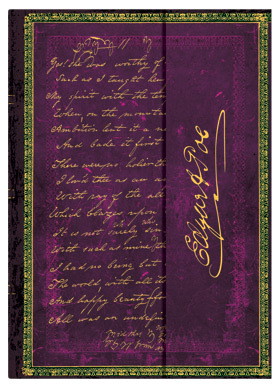 Yes! she was worthy of
Such as I taught her
My spirit with the
When on the mountain
Ambition lent it a new
And bade it first
There were no holier
I lov'd thee as an
With ray of the all
Which blazes upon
It is not surely sin
With such as mine
I had no being but
The world with all it
And happy beauty
All was an undefin
Edgar A Poe